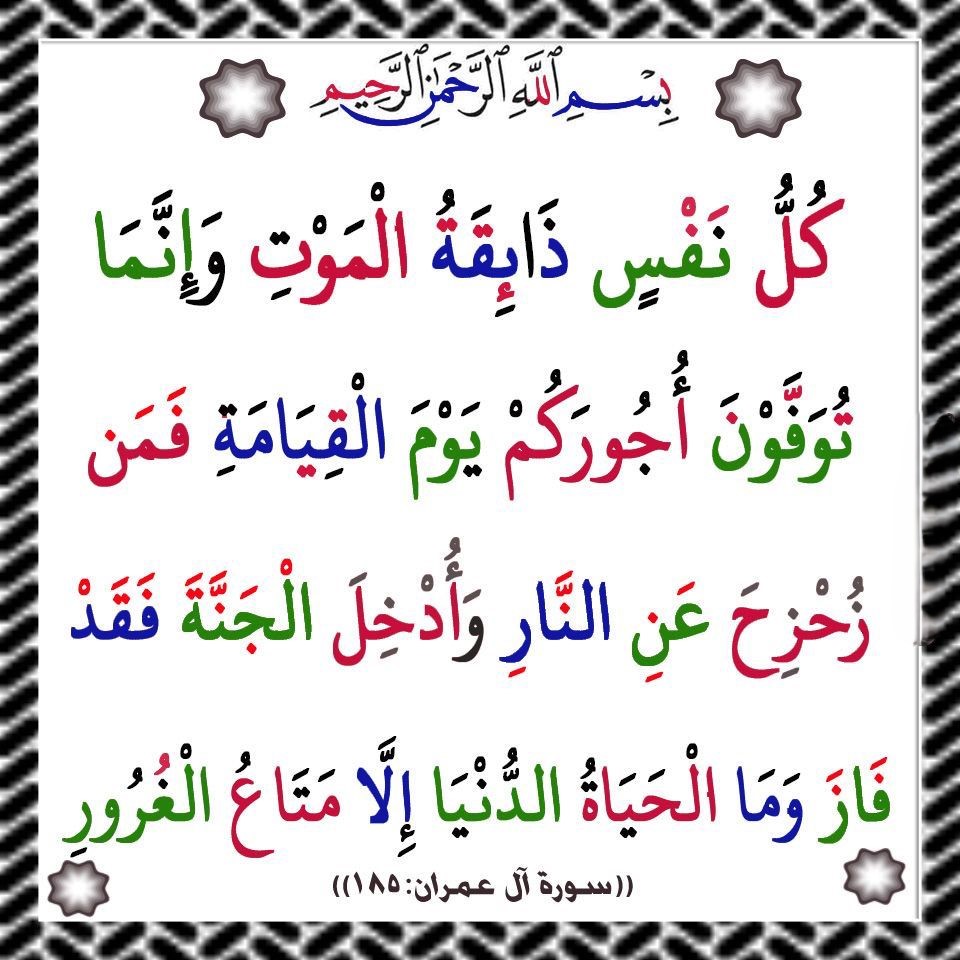 بِسْمِ اللَّهِ الرَّحْمَٰنِ الرَّحِيمِ
كُلُّ نَفْسٍ ذَائِقَةُ الْمَوْتِ وَإِنَّمَا
تُوَفَّوْنَ أُجُورَكُمْ يَوْمَ الْقِيَامَةِ فَمَن
زُحْزِحَ عَنِ النَّارِ وَأُدْخِلَ الْجَنَّةَ فَقَدْ
فَازَ وَمَا الْحَيَاةُ الدُّنْيَا إِلَّا مَتَاعُ الْغُرُورِ
((سورة آل عمران:١٨٥))